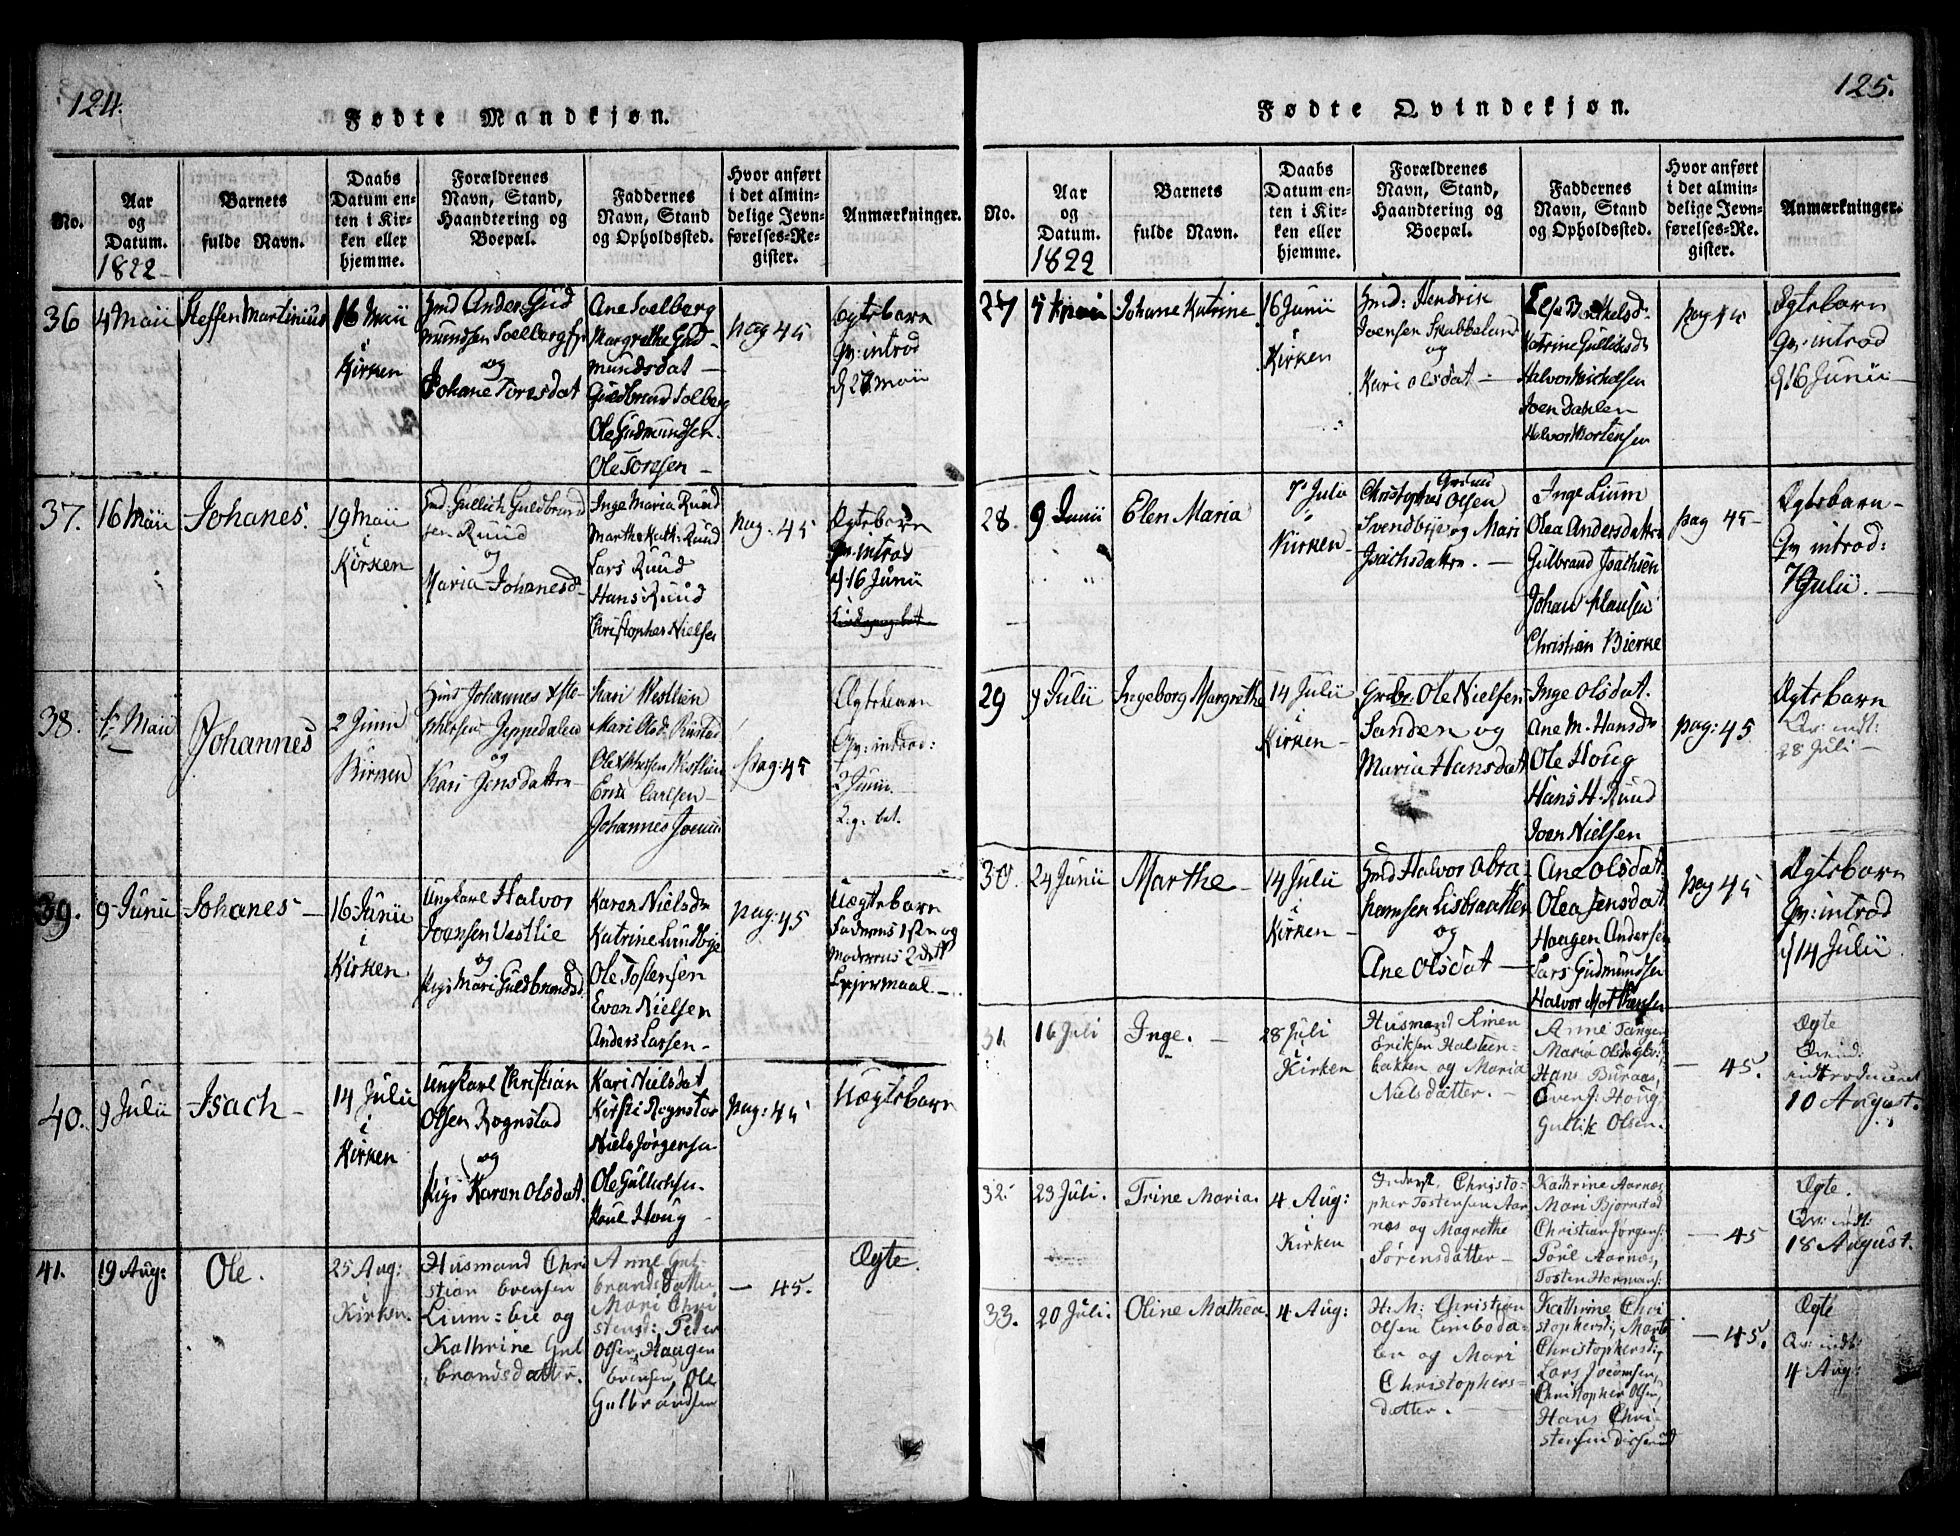 124.
Fødte Mandkjøn.
No.
Aar
og
Datum.
1822
Barnets
fulde Navn.
Daabs
Datum en-
ten i Kir-
ken eller
hjemme.
Forældrenes
Navn, Stand,
Haandtering og
Boepæl.
Faddernes
Navn, Stand
og Opholdssted.
Hvor anført
i det almin-
delige Jevn-
førelses-Re-
gister.
Anmærkninger.
36
4 Maii
Steffen Martinius
16 Maii
i
Kirken
Hmd Anders Gud
mundsen Soelberg
og
Johane Toresdat
Ane Soelberg
Margrethe Gud-
mundsdat
Guldbrand Solberg
Ole Gudmundsen.
Ole Toresen
pag 45
Ægtebarn
Qv: introd
d 27 Maii
37.
16 Maii
Johanes.
19 Maii
i
Kirken
Hmd Gullich Guldbrand
sen Ruud
og
Maria Johanesd
Inge Maria Ruud
Marthe Kath: Ruud
Lars Ruud
Hans Ruud
Christopher Nielsen
pag: 45
Ægtebarn
Qv: introd
d 16 Junii
38.
Maii
Johannes
2 Junii
Kirken
Johannes
Jeppedalen
og
Kari Jensdatter
Kari Westlien
Mari Olsd. Rustad
Ole Westlien
Erik Carlsen
Johannes
pag: 45
Ægtebarn
Qv: introd:
2 Junii
39.
9 Junii
Johanes
16 Junii
i
Kirken
Ungkarl Halvor
Joensen Vestlie
og
Pige Mari Guldbrandsd.
Karen Nielsdr
Katrine Lundbye
Ole Tostensen
Even Nielsen
Anders Larsen
pag: 45
Uægtebarn
Faderens 1ste og
Moderens 2det
Leiermaal
40.
9 Julii
Isach
14 Julii
i
Kirken
Ungkarl Christian
Olsen Rognstad
og
Pige Karen Olsdat.
Kari Nielsdat
Kirsti Rognstad
Niels Jørgensen
Ole Gullichsen
Poul Houg
pag: 45
Uægtebarn
41.
19 Aug:
Ole.
25 Aug:
Kirken.
Husmand Chri
stian Evensen
Lium: eie og
Kathrine Gul
brandsdatter.
Anne Gul-
brandsdatter
Mari Chri
stensd: Peder
Olsen, Haagen
Evensen, Ole
Gulbrandsen
— 45.
Ægte.
125.
Fødte Qvindekjøn.
No.
Aar
og
Datum.
1822
Barnets
fulde Navn.
Daabs
Datum en-
ten i Kir-
ken eller
hjemme.
Forældrenes
Navn, Stand,
Haandtering og
Boepæl.
Faddernes
Navn, Stand
og Opholdssted.
Hvor anført
i det almin-
delige Jevn-
førelses-Re-
gister.
Anmærkninger.
27
Johane Katrine
16 Junii
i
Kirken
Hmd: Hendrik
Joensen Skabbeland
og
Kari Olsdat
Katrine Gulliksdr
Halvor Michelsen
Joen Dahlen
Halvor Mortensen
pag 45
Ægtebarn
Qv: introd
d 16 Junii
28.
9 Junii
Elen Maria
7 Julii
i
Kirken
Christopher Olsen
Svendbye og Mari
Isachsdatter.
Inge Lium
Olea Andersdatter
Gulbrand Isachsen
Johan Klausen
Christian Bierke
pag 45
Ægtebarn
Qv introd:
7 Julii.
29
7 Julii
Ingeborg Margrethe
14 Julii
i
Kirken
Grbr. Ole Nielsen
Sanden og
Maria Hansdat
Inge Olsdat.
Ane M. Hansdr
Ole Houg
Hans H. Ruud
Joen Nielsen
pag: 45
Ægtebarn
Qv: indt:
28 Juli
30.
24 Junii
Marthe
14 Julii
i
Kirken
Hmd Halvor Abra
hamsen Lisbraatten
og
Ane Olsdat
Ane Olsdat.
Olea Jensdat.
Haagen Andersen
Lars Gudmundsen
Halvor Mathisen
pag 45
Ægtebarn
Qv: introd
d 14 Julii
31.
16 Juli
Inge.
28 Juli
i
Kirken
Husmand Simen
Eriksen Halsteen-
bakken og Maria
Nielsdatter
Anne Tangen
Maria Olsdatter
Hans Buraas,
Evens: Houg
Gullik Olsen.
— 45.
Ægte
Qvind:
introduceret
10 August.
32.
23 Juli.
Trine Maria.
4 Aug:
i
Kirken
Inderst, Christo-
pher Tostensen Aar
næs og Magrethe
Sørensdatter
Kathrine Aarnæs,
Mari Bjørnstad
Christian Jørgens:
Toril Aarnæs,
Tosten Hermans:
— 45
Ægte.
Qv: indt:
18 August.
33.
20 Juli.
Oline Mathea
4 Aug:
H. M: Christian
Olsen Limboda-
len og Mari
Christophers-
datter.
Kathrine Chri
stophersd, Marte
Christophersd,
Lars Jocumsen,
Christopher Olsen,
Hans Chri-
stensen Diserud
— 45.
Ægte
Qv: indt:
4 Aug: